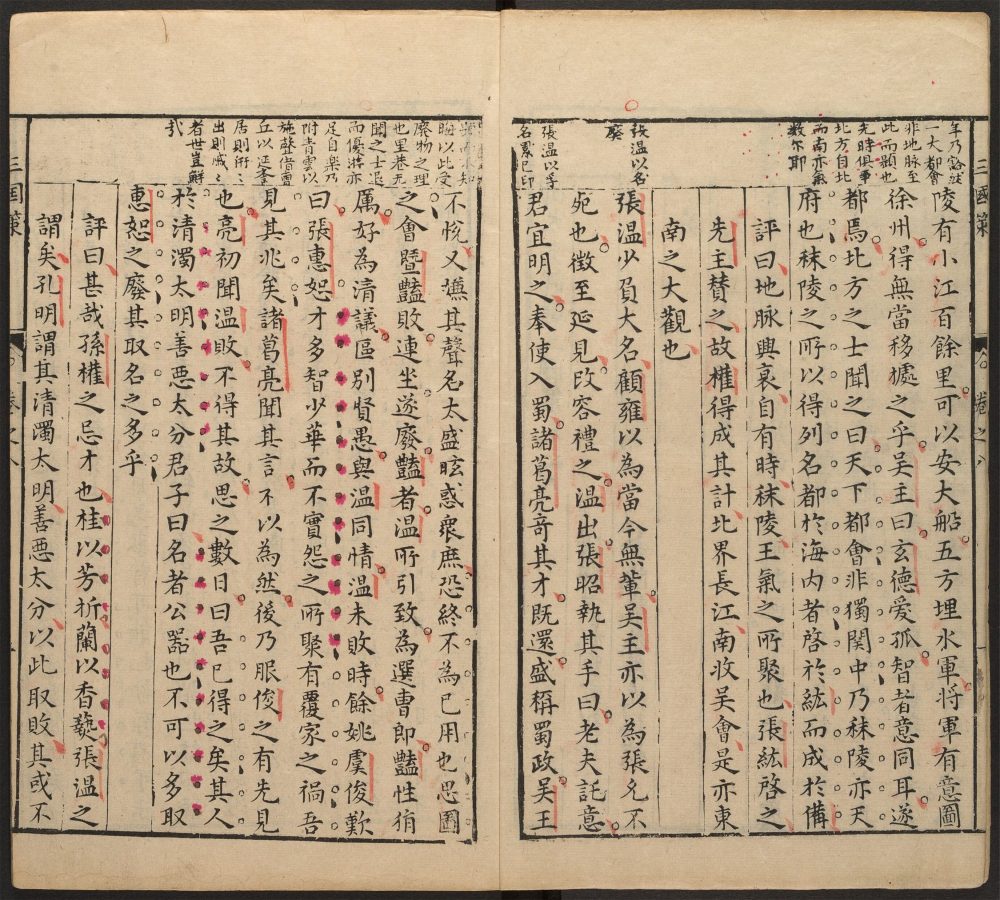 年乃豁然
一大都會
非地脉至
此而顯也
先時俱事
北方自北
而南亦氣
數尔耶
陵有小江百餘里可以安大船五方埋水軍将軍有意圖
徐州得無當移㩀之乎吴主曰玄德爱孤智者意同耳遂
都焉北方之士聞之曰天下都會非獨関中乃秣陵亦天
府也秣陵之所以得列名都於海内者啓於紘而成於備
評曰地脉興衰自有時秣陵王氣之所聚也張紘啓之
先主賛之故權得成其計北界長江南收吴會是亦東
南之大觀也
張温以名
廢
張温少負大名顧雍以為當今無輩吴主亦以為張允不
死也徵至延見改容禮之温出張昭執其手曰老夫託意
張温以孚
名累已印
君宜明之奉使入蜀諸葛亮竒其才既還盛稱蜀政吴王
三國策
卷之
晦以此受
廢物之理
也里巷无
聞之士退
而優游亦
足自樂乃
附青雲以
施聲借曹
丘以延
居則
出則
者世豈鮮
㢤
不悅又嫌其聲名太盛眩惑衆庶恐終不為已用也思圖
之會曁豔敗連坐遂廢豔者温所引致為選曹郎豔性狷
厲好為清議區别賢愚與温同情温未敗時餘姚虞俊歎
曰張惠恕才多智少華而不實怨之所聚有覆家之禍吾
見其兆矣諸葛亮聞其言不以為然後乃服俊之有先見
也亮初聞温敗不得其故思之數日曰吾已得之矣其人
於清濁太明善惡太分君子曰名者公噐也不可以多取
惠恕之廢其取名之多乎
評曰甚哉孫權之忌才也桂以芳折蘭以香爇張温之
謂矣孔明謂其清濁太明善惡太分以此取敗其或不
三国策
卷之